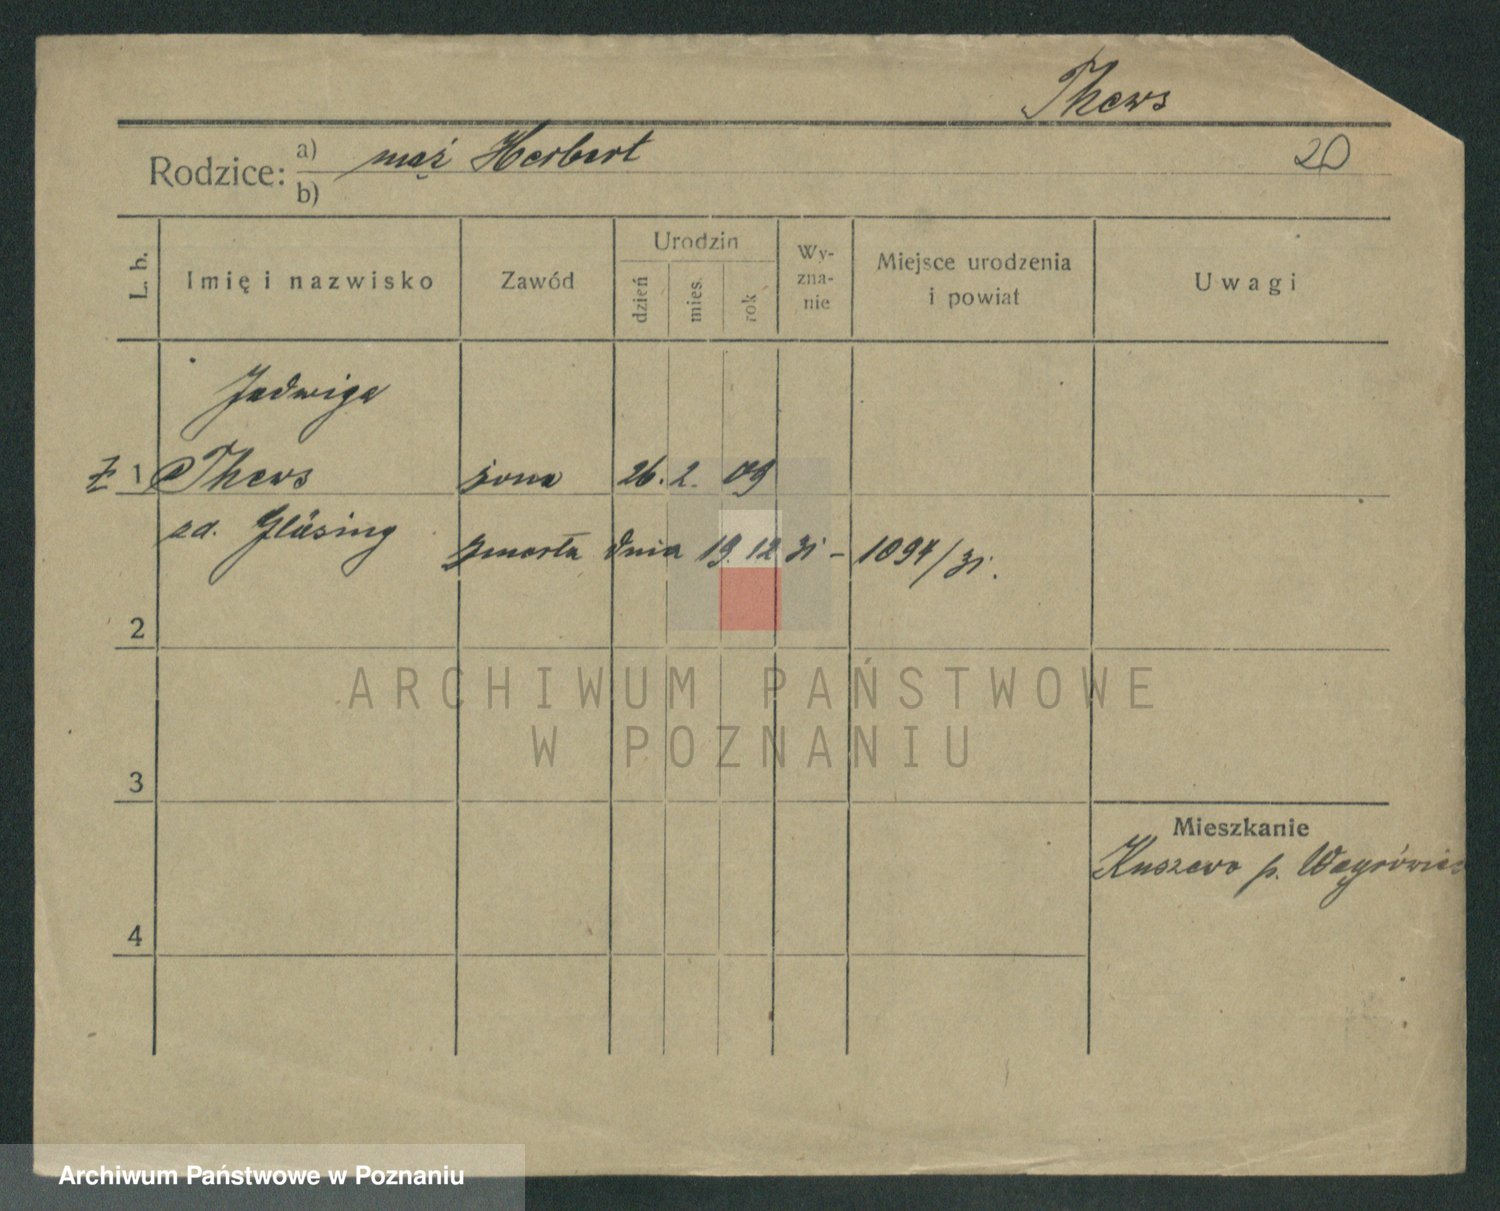 Thews
Rodzice: a) mąż Herbert 20
b)
L. b. Imię i nazwisko Zawód Urodzin dzień mies. rok Wy-zna-nie Miejsce urodzenia i powiat Uwagi
Jadwiga
1 Thews żona 26. 2. 09
zd. Gläsing
zmarła dnia 19. 12 31 - 1094/31.
2
ARCHIWUM PAŃSTWOWE
W POZNANIU
3
Mieszkanie
p.
4
Archiwum Państwowe w Poznaniu